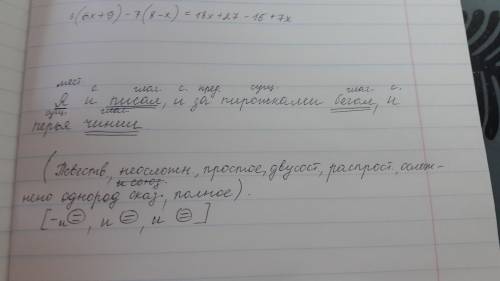 3(6x+9)-7(8-x)=18x+27-16+7x
мест с. глаг. с. пред. сущ. глаг. с.
Я и писал, и за пирожками бегал, и
сущ. глаг.
перья чинил
(Повеств, неосложн, простое, двусост, распрост, ослож-
и союз.
нено однород сказ, полное).
[-и=, и =, и =]